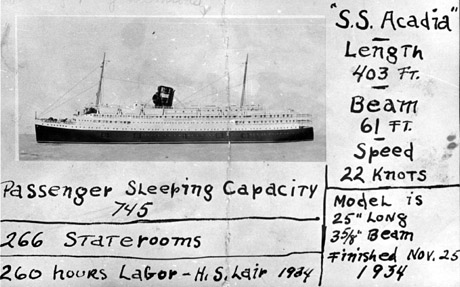 "S.S. Acadia"
Length
403 FT.
Beam
61 FT.
Speed
22 KNOTS
Passenger Sleeping Capacity
745
266 Staterooms
260 hours Labor - H.S. Lair 1934
Model is
25" Long
3 5/8" Beam
Finished Nov. 25
1934